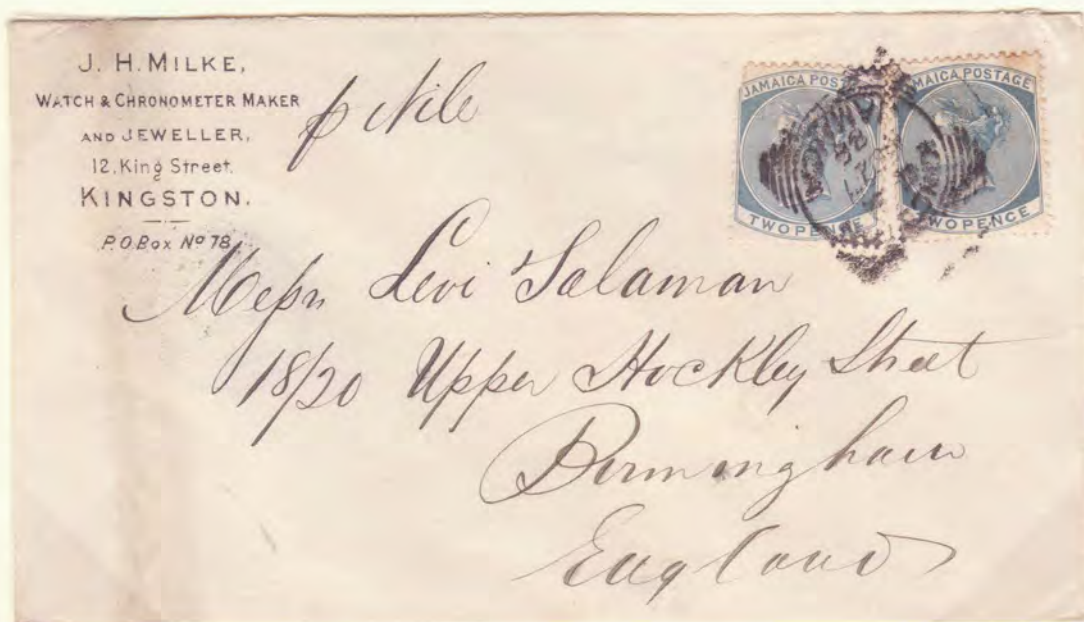 J. H. MILKE,
WATCH & CHRONOMETER MAKER
AND JEWELLER,
12, King Street,
KINGSTON.
P.O Box No 78.
p Nile
JAMAICA POSTAGE
TWO PENCE
TWO PENCE
Messrs Levi Salaman
18/20 Upper Hockley Street
Birmingham
England